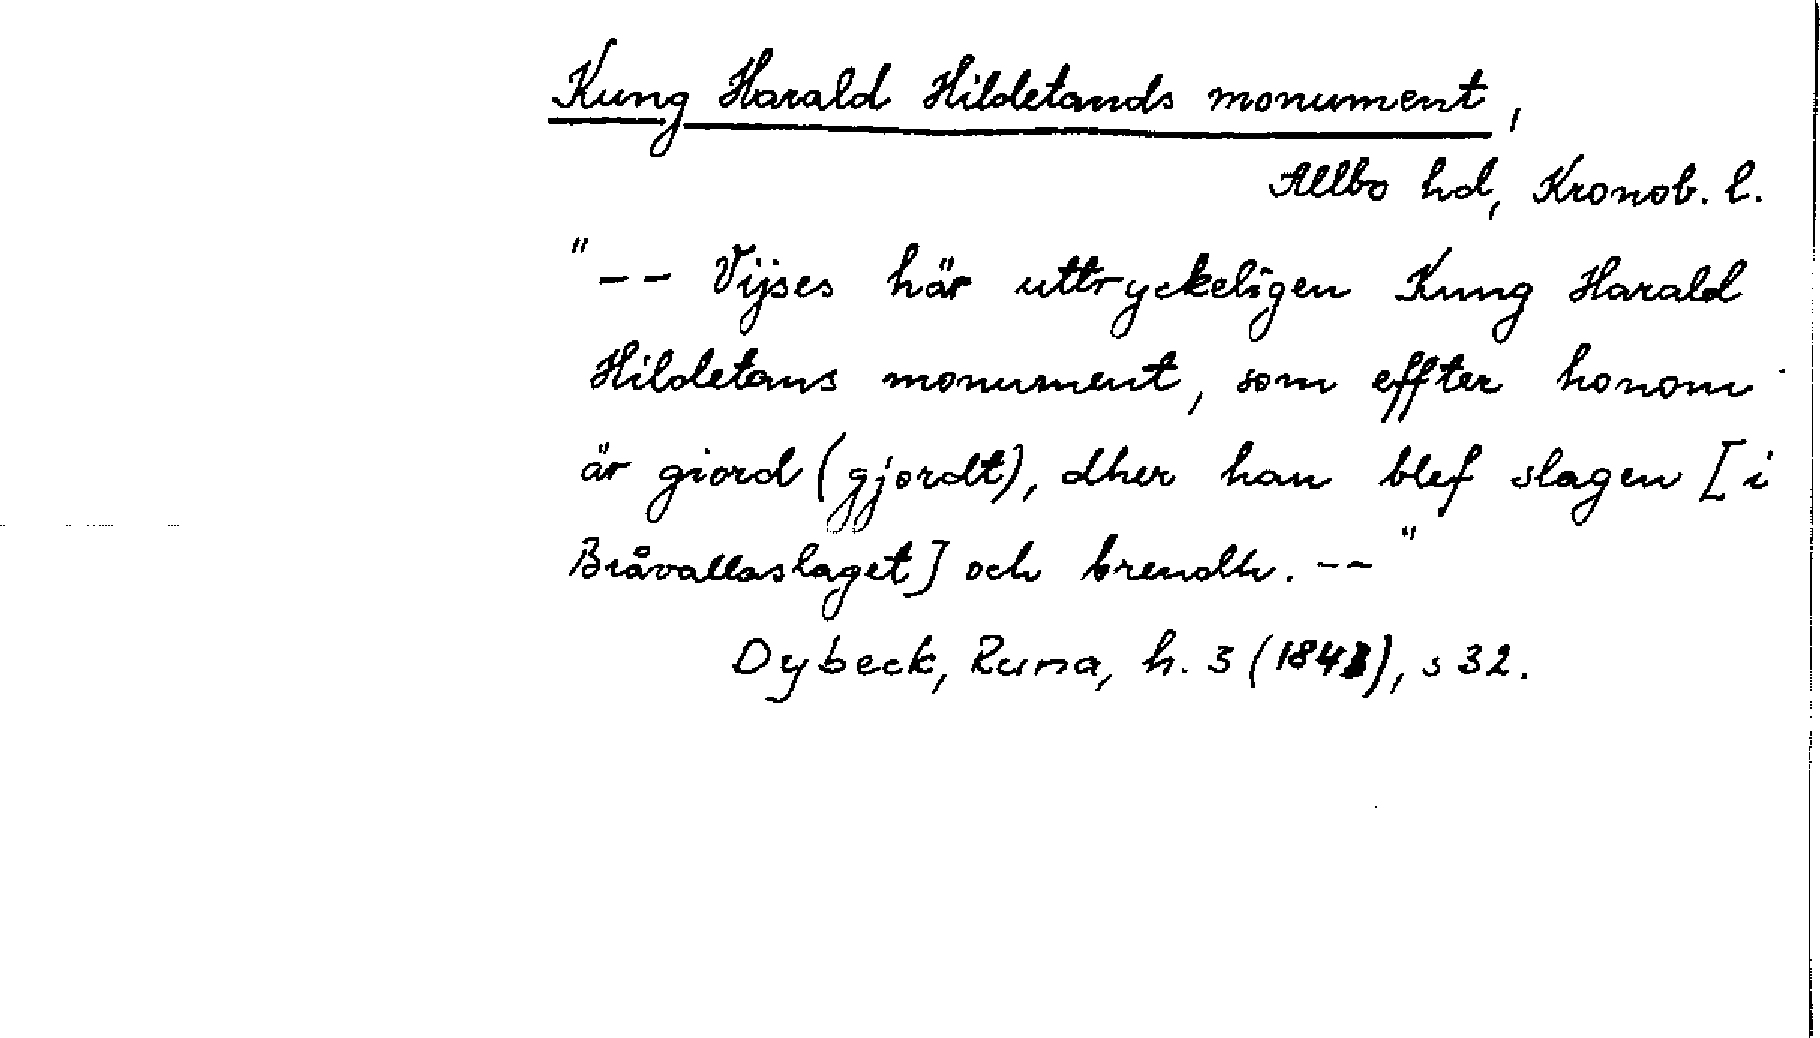 Kung Harald Hildetands monument,
Allbo hd, Kronob. l.
"-- Vijses här uttryckeligen Kung Harald
Hildetans monument, som effter honom
är giord (gjordt), dher han blef slagen [i
Bråvallaslaget] och brendh. --"
Dybeck, Runa, h. 3 (1843), s 32.